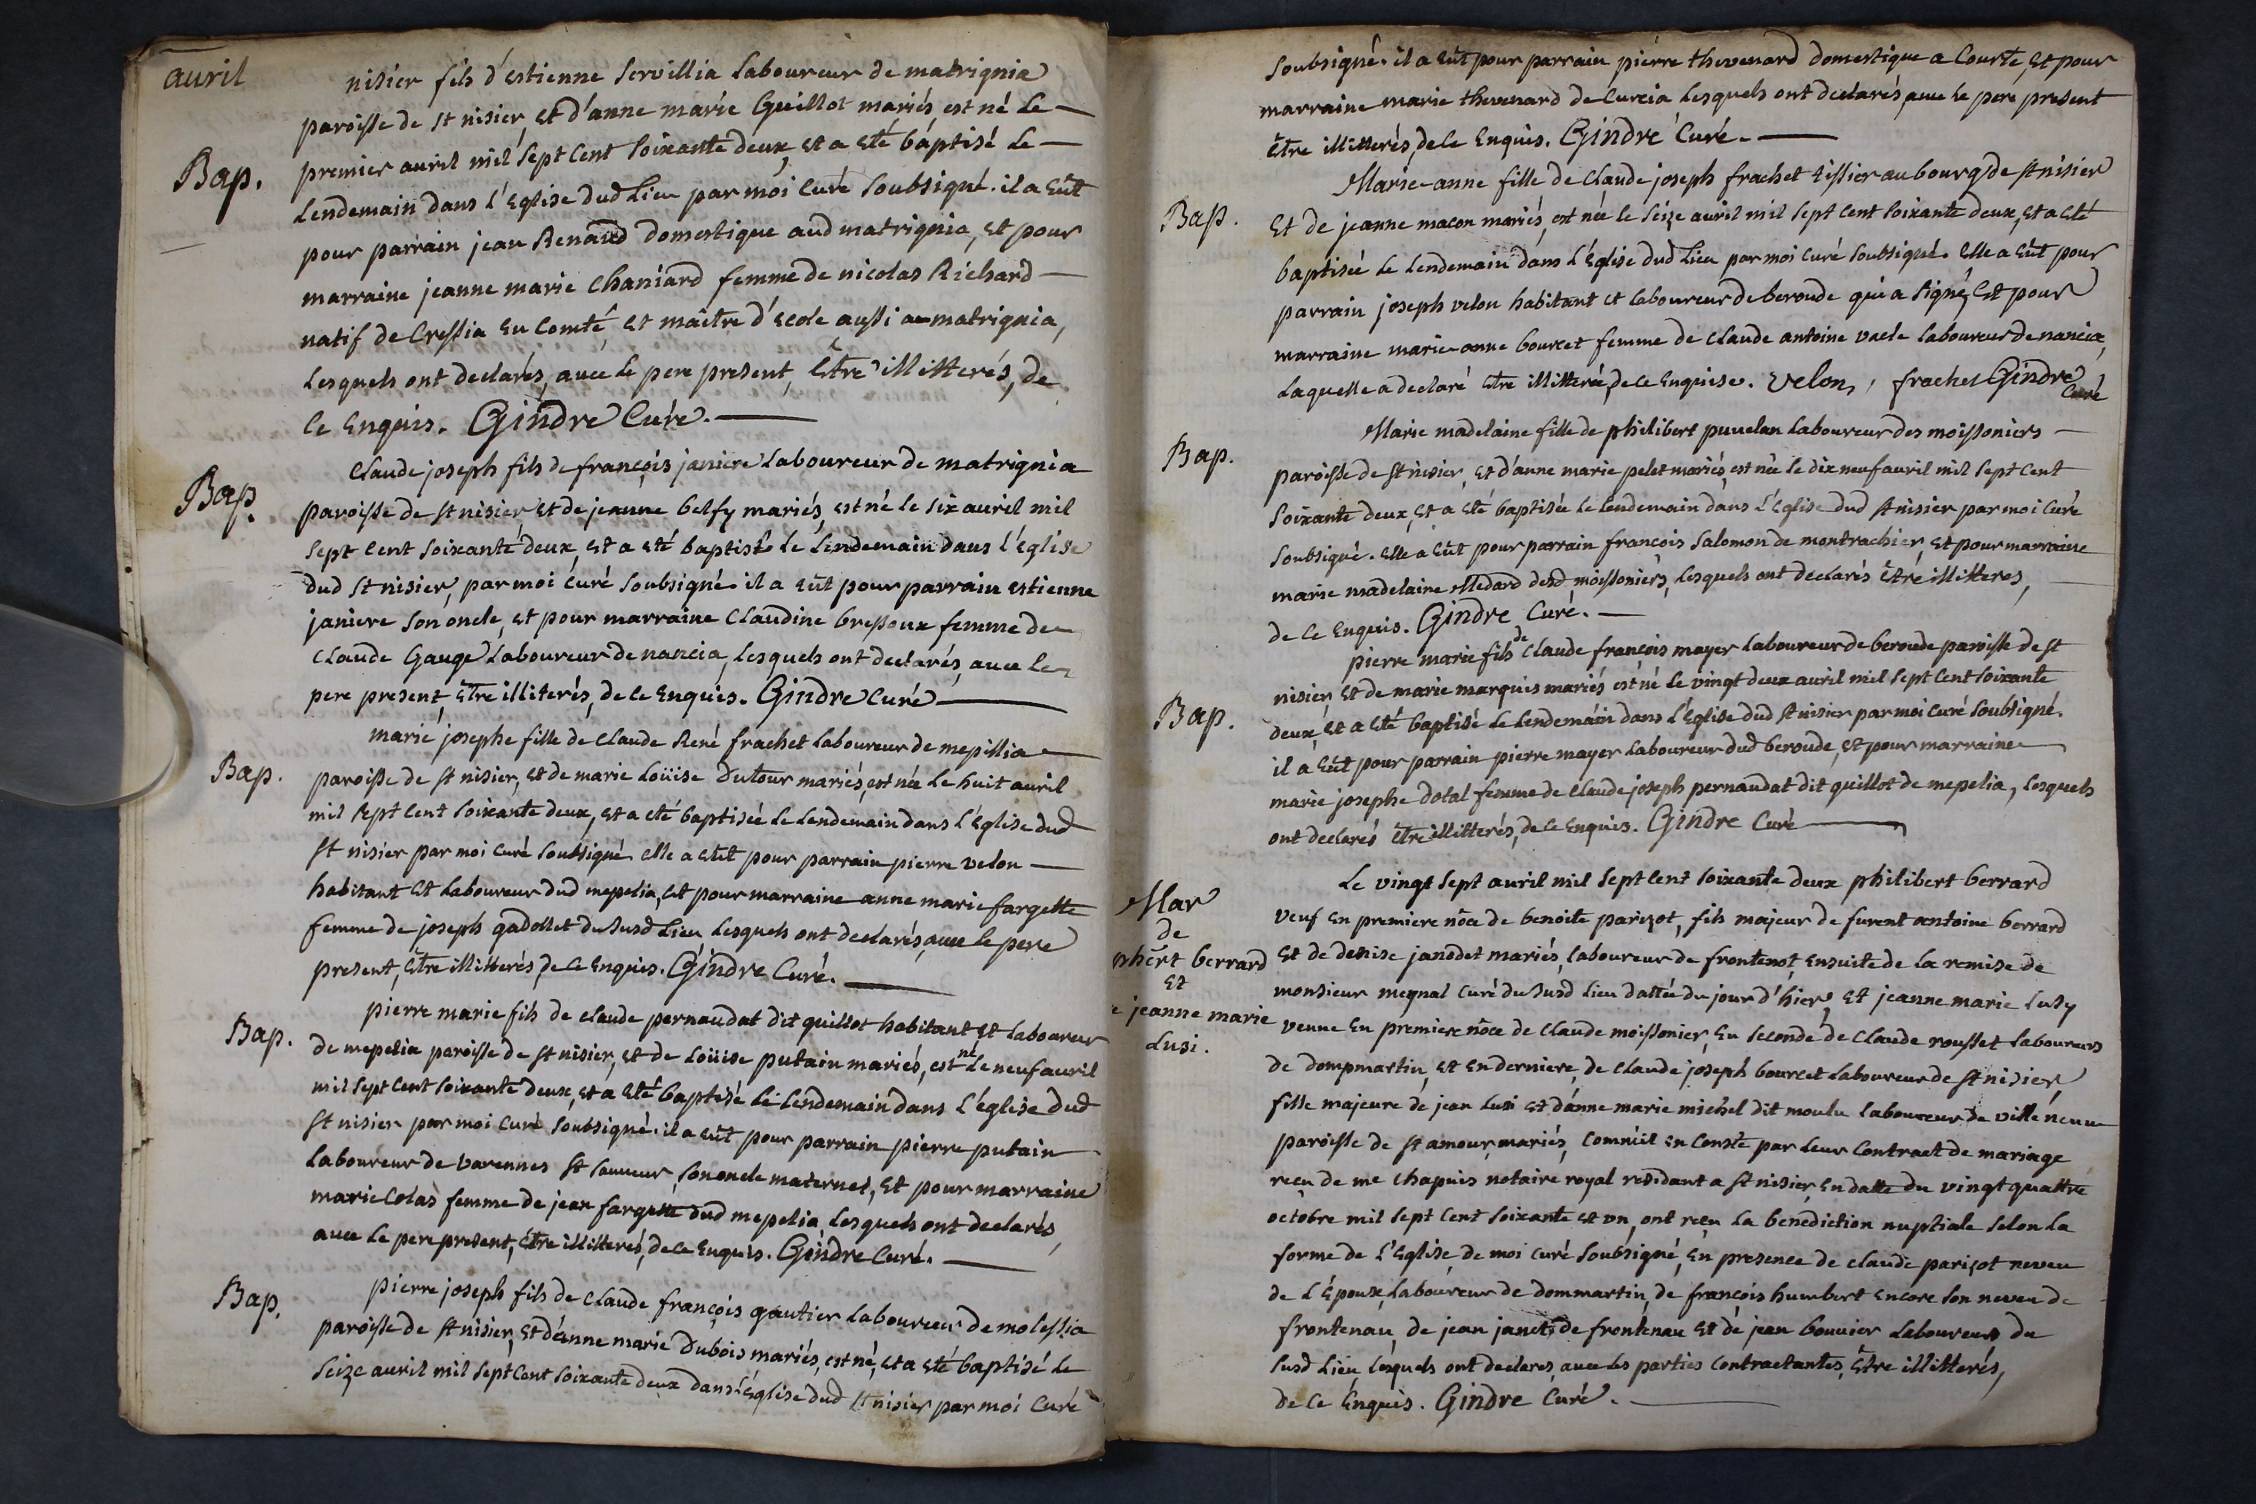 avril
nisier fils d'estienne Servillia laboureur de matrignia
paroisse de st nisier, et d'anne marie Guillot mariés, est né le
premier avril mil sept cent soixante deux, et a eté baptisé le
Bap.
lendemain dans l'eglise dud lieu par moi curé soubsigné. il a eût
pour parrain jean Renaud domestique aud matrignia, et pour
marraine jeanne marie Chaniard femme de nicolas Richard
natif de Cressia en comté, et maître d'ecole aussi a matrignia,
lesquels ont declarés, avec le pere present, être illitterés, de
ce enquis. Gindre Curé.
Claude joseph fils de françois janiere laboureur de matrignia
Bap.
paroisse de st nisier, et de jeanne belfy mariés, est né le six avril mil
sept cent soixante deux, et a eté baptisé le lendemain dans l'eglise
dud st nisier, par moi curé soubsigné. il a eût pour parrain estienne
janiere son oncle, et pour marraine Claudine bressoux femme de
claude Gauge laboureur de nancia, lesquels ont declarés, avec le
pere present, être illiterés, de ce enquis. Gindre curé
marie josephe fille de claude René frachet laboureur de mepillia
Bap.
paroisse de st nisier, et de marie Loüise Dutour mariés, est née le huit avril
mil sept cent soixante deux, et a eté baptisée le lendemain dans l'Eglise dud
st nisier par moi curé soubsigné. elle a eût pour parrain pierre velon
habitant et laboureur dud mepelia, et pour marraine anne marie fargette
femme de joseph gadollet du susd lieu lesquels ont declarés, avec le pere
present, être illitterés, de ce enquis. Gindre Curé.
pierre marie fils de claude pernaudat dit guillot habitant et laboureur
Bap.
de mepelia paroisse de st nisier, et de Loüise putain mariés, est né le neuf avril
mil sept cent soixante deux, et a eté baptisé le lendemain dans l'église dud
st nisier par moi curé soubsigné. il a eût pour parrain pierre putain
laboureur de varennes st sauveur son oncle maternel, et pour marraine
marie Colas femme de jean fargette dud mepelia, lesquels ont declarés,
avec le pere present, être illitterés, de ce enquis. Gindre Curé.
pierre joseph fils de claude françois gautier laboureur de molessia
Bap.
paroisse de st nisier, et d'anne marie Dubois mariés, est né, et a eté baptisé le
seize avril mil sept cent soixante deux dans l'église dud st nisier par moi curé
soubsigné. il a eût pour parrain piérre thevenard domestique a courte, et pour
marraine marie thevenard de curcia lesquels ont declarés, avec le pere present
être illitterés, de ce enquis. Gindre Curé.
Marie-anne fille de claude joseph frachet tissier au bourg de st nisier
Bap.
et de jeanne macon mariés, est née le seize avril mil sept cent soixante deux, et a eté
baptisée le lendemain dans l'église dud lieu par moi curé soubsigné. elle a eût pour
parrain joseph velon habitant et laboureur de beroude qui a signé, et pour
marraine marie-anne bourcet femme de claude antoine vaele laboureur de nancia,
laquelle a declaré être illitterée, de ce enquise. Velon, frachet Gindre
Curé
Marie madelaine fille de philibert puvelan laboureur des moissoniers
Bap.
paroisse de st nisier, et d'anne marie pelet mariés, est née le dix neuf avril mil sept cent
soixante deux, et a eté baptisée le lendemain dans l'église dud st nisier par moi curé
soubsigné. elle a eût pour parrain françois salomon de montrachier, et pour marraine
marie madelaine Medard desd moissoniers, lesquels ont declarés être illitteres,
de ce enquis. Gindre Curé.
pierre marie fils de claude françois mayer laboureur de beroude paroisse de st
Bap.
nisier, et de marie marquis mariés est né le vingt deux avril mil sept cent soixante
deux, et a eté baptisé le lendemain dans l'église dud st nisier par moi curé soubsigné.
il a eût pour parrain pierre mayer laboureur dud beroude, et pour marraine
marie josephe dotal femme de claude joseph pernaudat dit guillot de mepelia, lesquels
ont declarés être illitterés, de ce enquis. Gindre Curé
Le vingt sept avril mil sept cent soixante deux philibert berrard
Mar
de
phbert berrard
et
e jeanne marie
Lusi.
veuf en premiere nôce de benoite parizot, fils majeur de furent antoine berrard
et de denise janodet mariés, laboureur de frontenot, ensuite de la remise de
monsieur meynal curé du susd lieu dattée du jour d'hier, et jeanne marie lusy
veuve en premiere nôce de claude moissonier, en seconde de claude rousset laboureurs
de dompmartin, et en derniere, de claude joseph bourcet laboureur de st nisier,
fille majeure de jean lusi et d'anne marie michel dit moulu laboureur de villeneuve
paroisse de st amour, mariés, comm'il en conste par leur contract de mariage
reçu de me chapuis notaire royal residant a st nisier, en datte du vingt quattre
octobre mil sept cent soixante et un, ont reçu la benediction nuptiale selon la
forme de l'Eglise, de moi curé soubsigné, en presence de claude parizot neveu
de l'Epoux, laboureur de dommartin, de françois humbert encore son neveu de
frontenau, de jean janet de frontenau et de jean bouvier laboureurs du
susd lieu, lesquels ont declares, avec les parties contractantes, être illitterés,
de ce enquis. Gindre Curé.